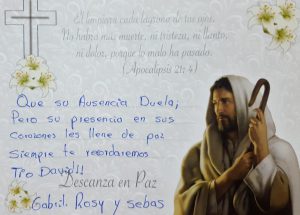 El limpiara cada lagrima de tus ojos.
Ya no habrá más muerte, ni tristeza, ni llanto,
ni dolor, porque lo malo ha pasado.
(Apocalipsis 21: 4)
Que su Ausencia Duela;
Pero su presencia en sus
Corazones les llene de paz
Siempre te recordaremos
Tio David!!
Descanza en Paz
Gabril. Rosy y sebas